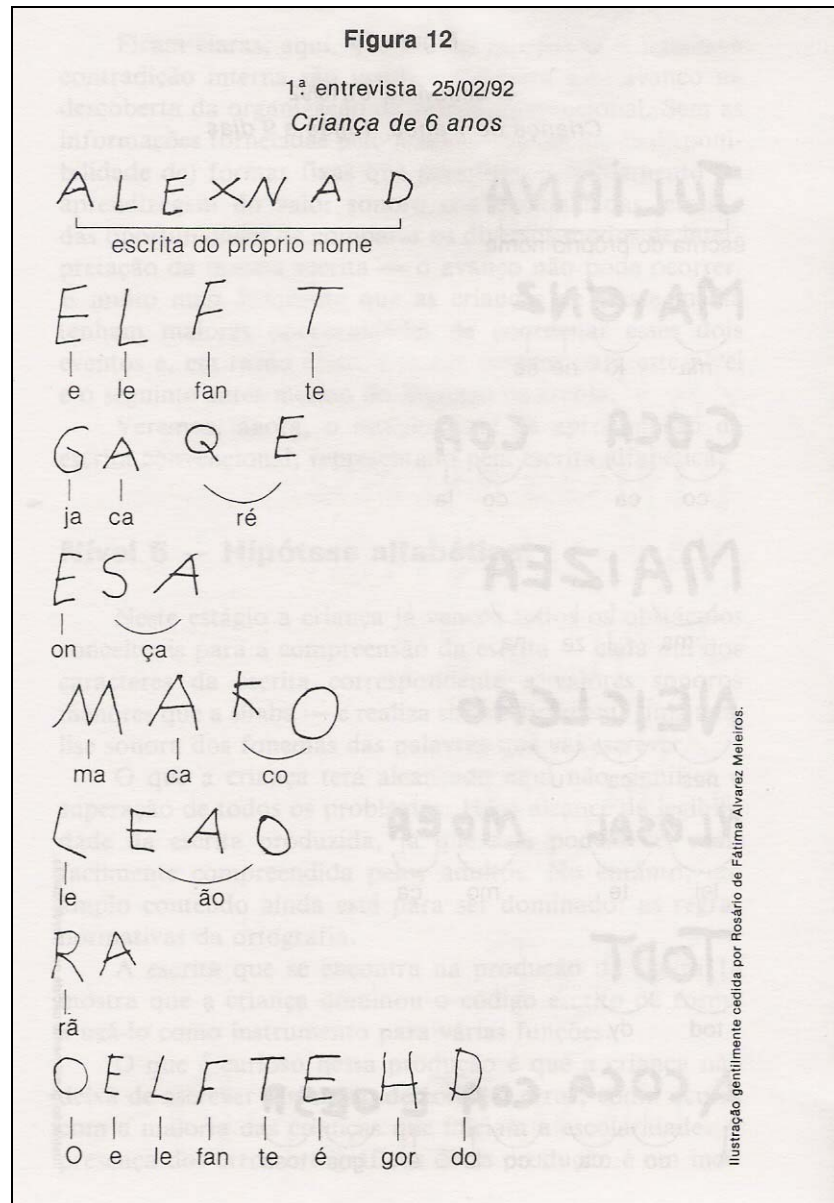 Figura 12
1ª entrevista 25/02/92
Criança de 6 anos
ALEXNAD
escrita do próprio nome
ELFT
e le fan te
GAQE
ja ca ré
ESA
on ça
MACO
ma ca co
LEAO
le ão
RA
rã
OELFTEHD
O e le fan te é gor do
Ilustração gentilmente cedida por Rosário de Fátima Alvarez Meleiros.